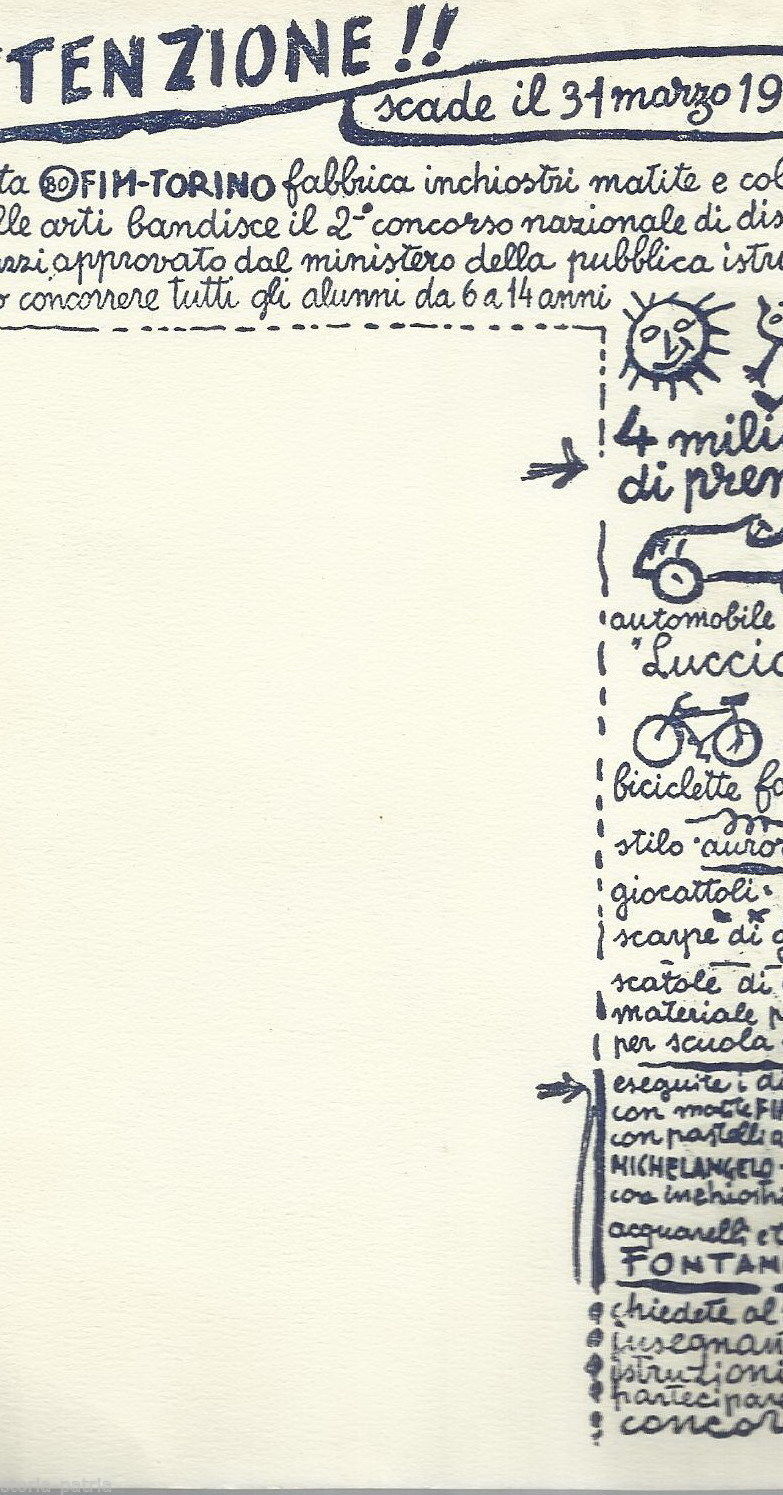 TTENZIONE!!
scade il 31 marzo 19
ta BO FIM-TORINO fabbrica inchiostri matite e col
lle arti bandisce il 2° concorso nazionale di dis
zzi, approvato dal ministero della pubblica istru
o concorrere tutti gli alunni da 6 a 14 anni
4 mili
di prem
automobile
"Luccio
biciclette fa
stilo "auror
giocattoli.
scarpe di g
scatole di
materiale p
per scuola
eseguite i di
con matite FIM
con pastelli a
MICHELANGELO
con inchiostri
acquarelli e t
FONTAN
chiedete al
insegnan
istruzioni
partecipare
concor
storia_patria